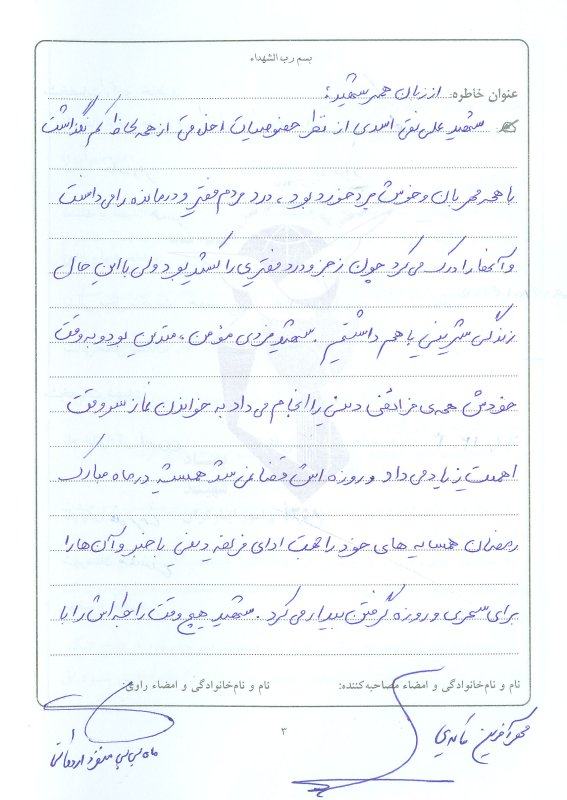 بسم رب الشهداء
عنوان خاطره: از زبان همسر شهید:
شهید علی نقی اسدی از نظر خصوصیات اخلاقی از همه لحاظ کم نگذاشت
با همه مهربان و خوش برخورد بود، درد مردم فقیر و درمانده را می دانست
و آنها را درک می کرد چون زجر و درد فقیری را کشیده بود ولی با این حال
زندگی شیرینی با هم داشتیم. شهید فردی مؤمن، متدین بود و به وقت
خودش همه ی فرائض دینی را انجام می داد به خواندن نماز سر وقت
اهمیت زیاد می داد و روزه اش قضا نمی شد همیشه در ماه مبارک
رمضان همسایه های خود را جهت ادای فریضه دینی با خبر و آن ها را
برای سحری و روزه گرفتن بیدار می کرد. شهید هیچ وقت رابطه اش را با
نام و نام‌خانوادگی و امضاء مصاحبه‌کننده: نام و نام‌خانوادگی و امضاء راوی:
مهرآفرین
ماه بی بی
۳